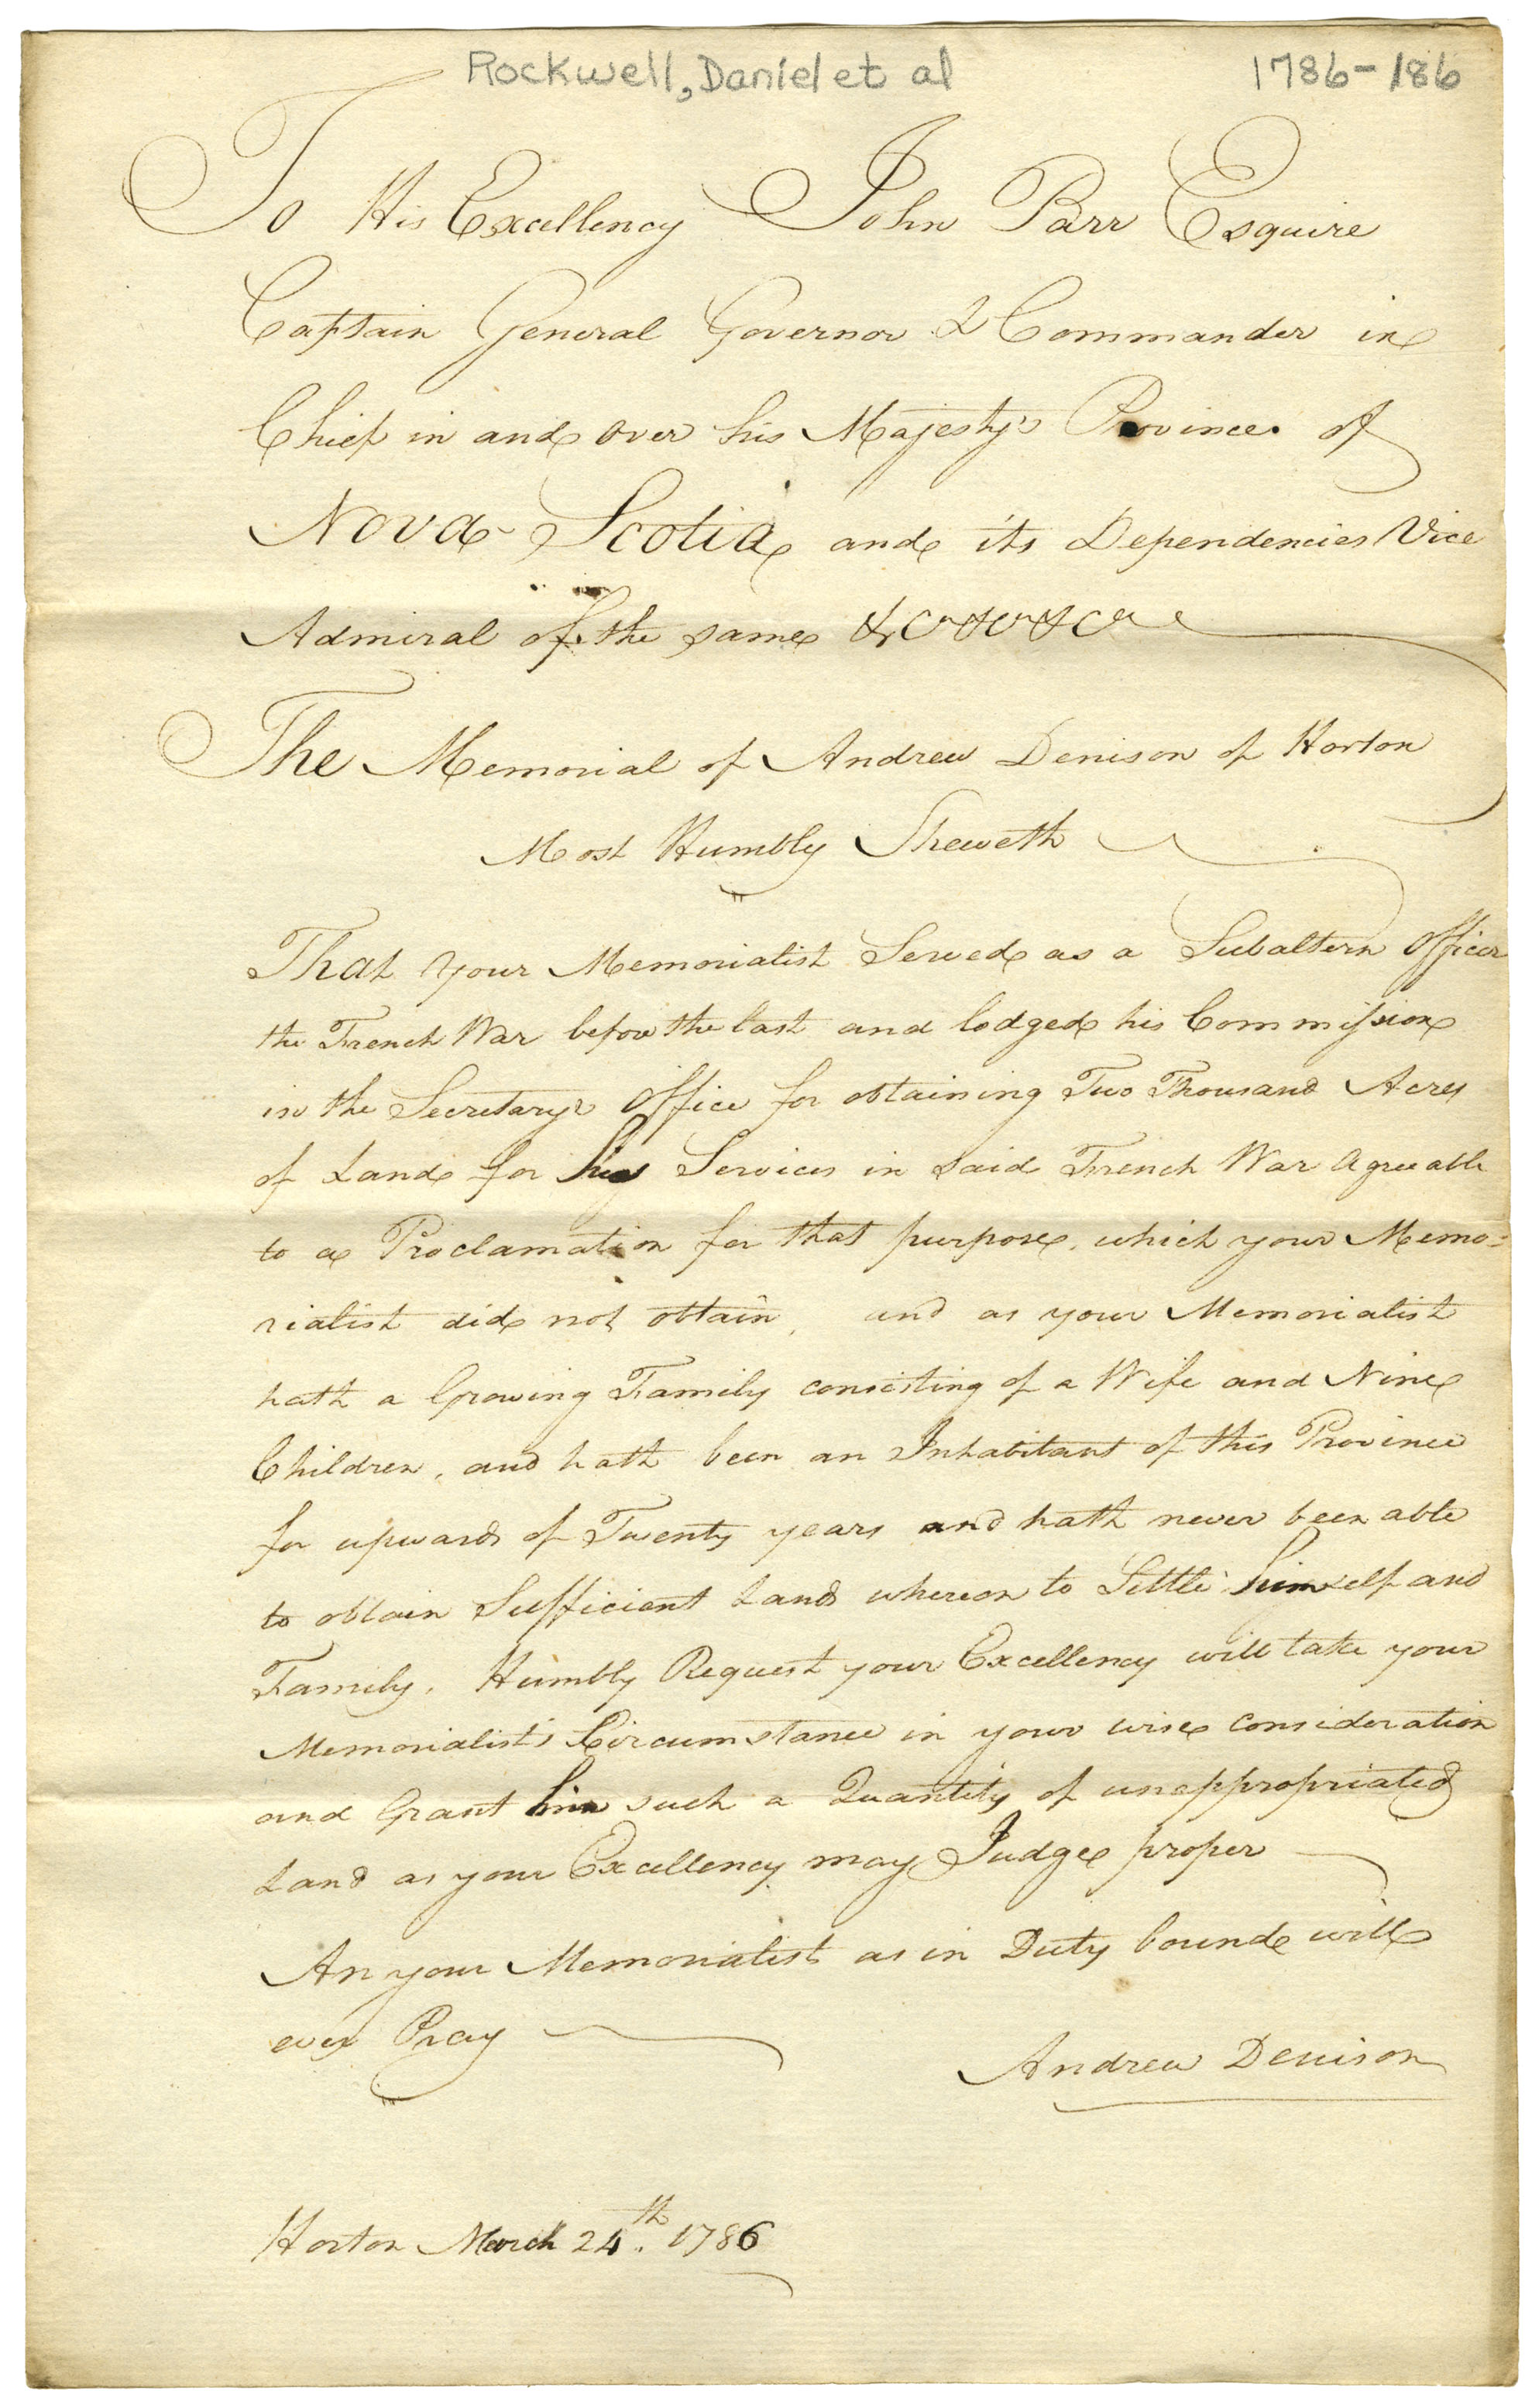 Rockwell, Daniel et al 1786-186
To His Excellency John Parr Esquire
Captain General Governor & Commander in
Chief in and over his Majesty's Province of
Nova Scotia and its Dependencies Vice
Admiral of the same &c &c &ca
The Memorial of Andrew Denison of Horton
Most Humbly Sheweth
That your Memorialist Served as a Subaltern Officer
the French War before the last and lodged his Commission
in the Secretarys Office for obtaining Two Thousand Acres
of Land for his Services in said French War Agreeable
to a Proclamation for that purpose, which your Memo=
rialist did not obtain, and as your Memorialist
hath a Growing Family consisting of a Wife and Nine
Children, and hath been an Inhabitant of this Province
for upwards of Twenty years and hath never been able
to obtain Sufficient Land whereon to Settle himself and
Family. Humbly Request your Excellency will take your
Memorialist's Circumstance in your wise consideration
and Grant him such a Quantity of unappropriated
Land as your Excellency may Judge proper
An your Memorialist as in Duty bound will
ever Pray
Andrew Denison
Horton March 24th. 1786